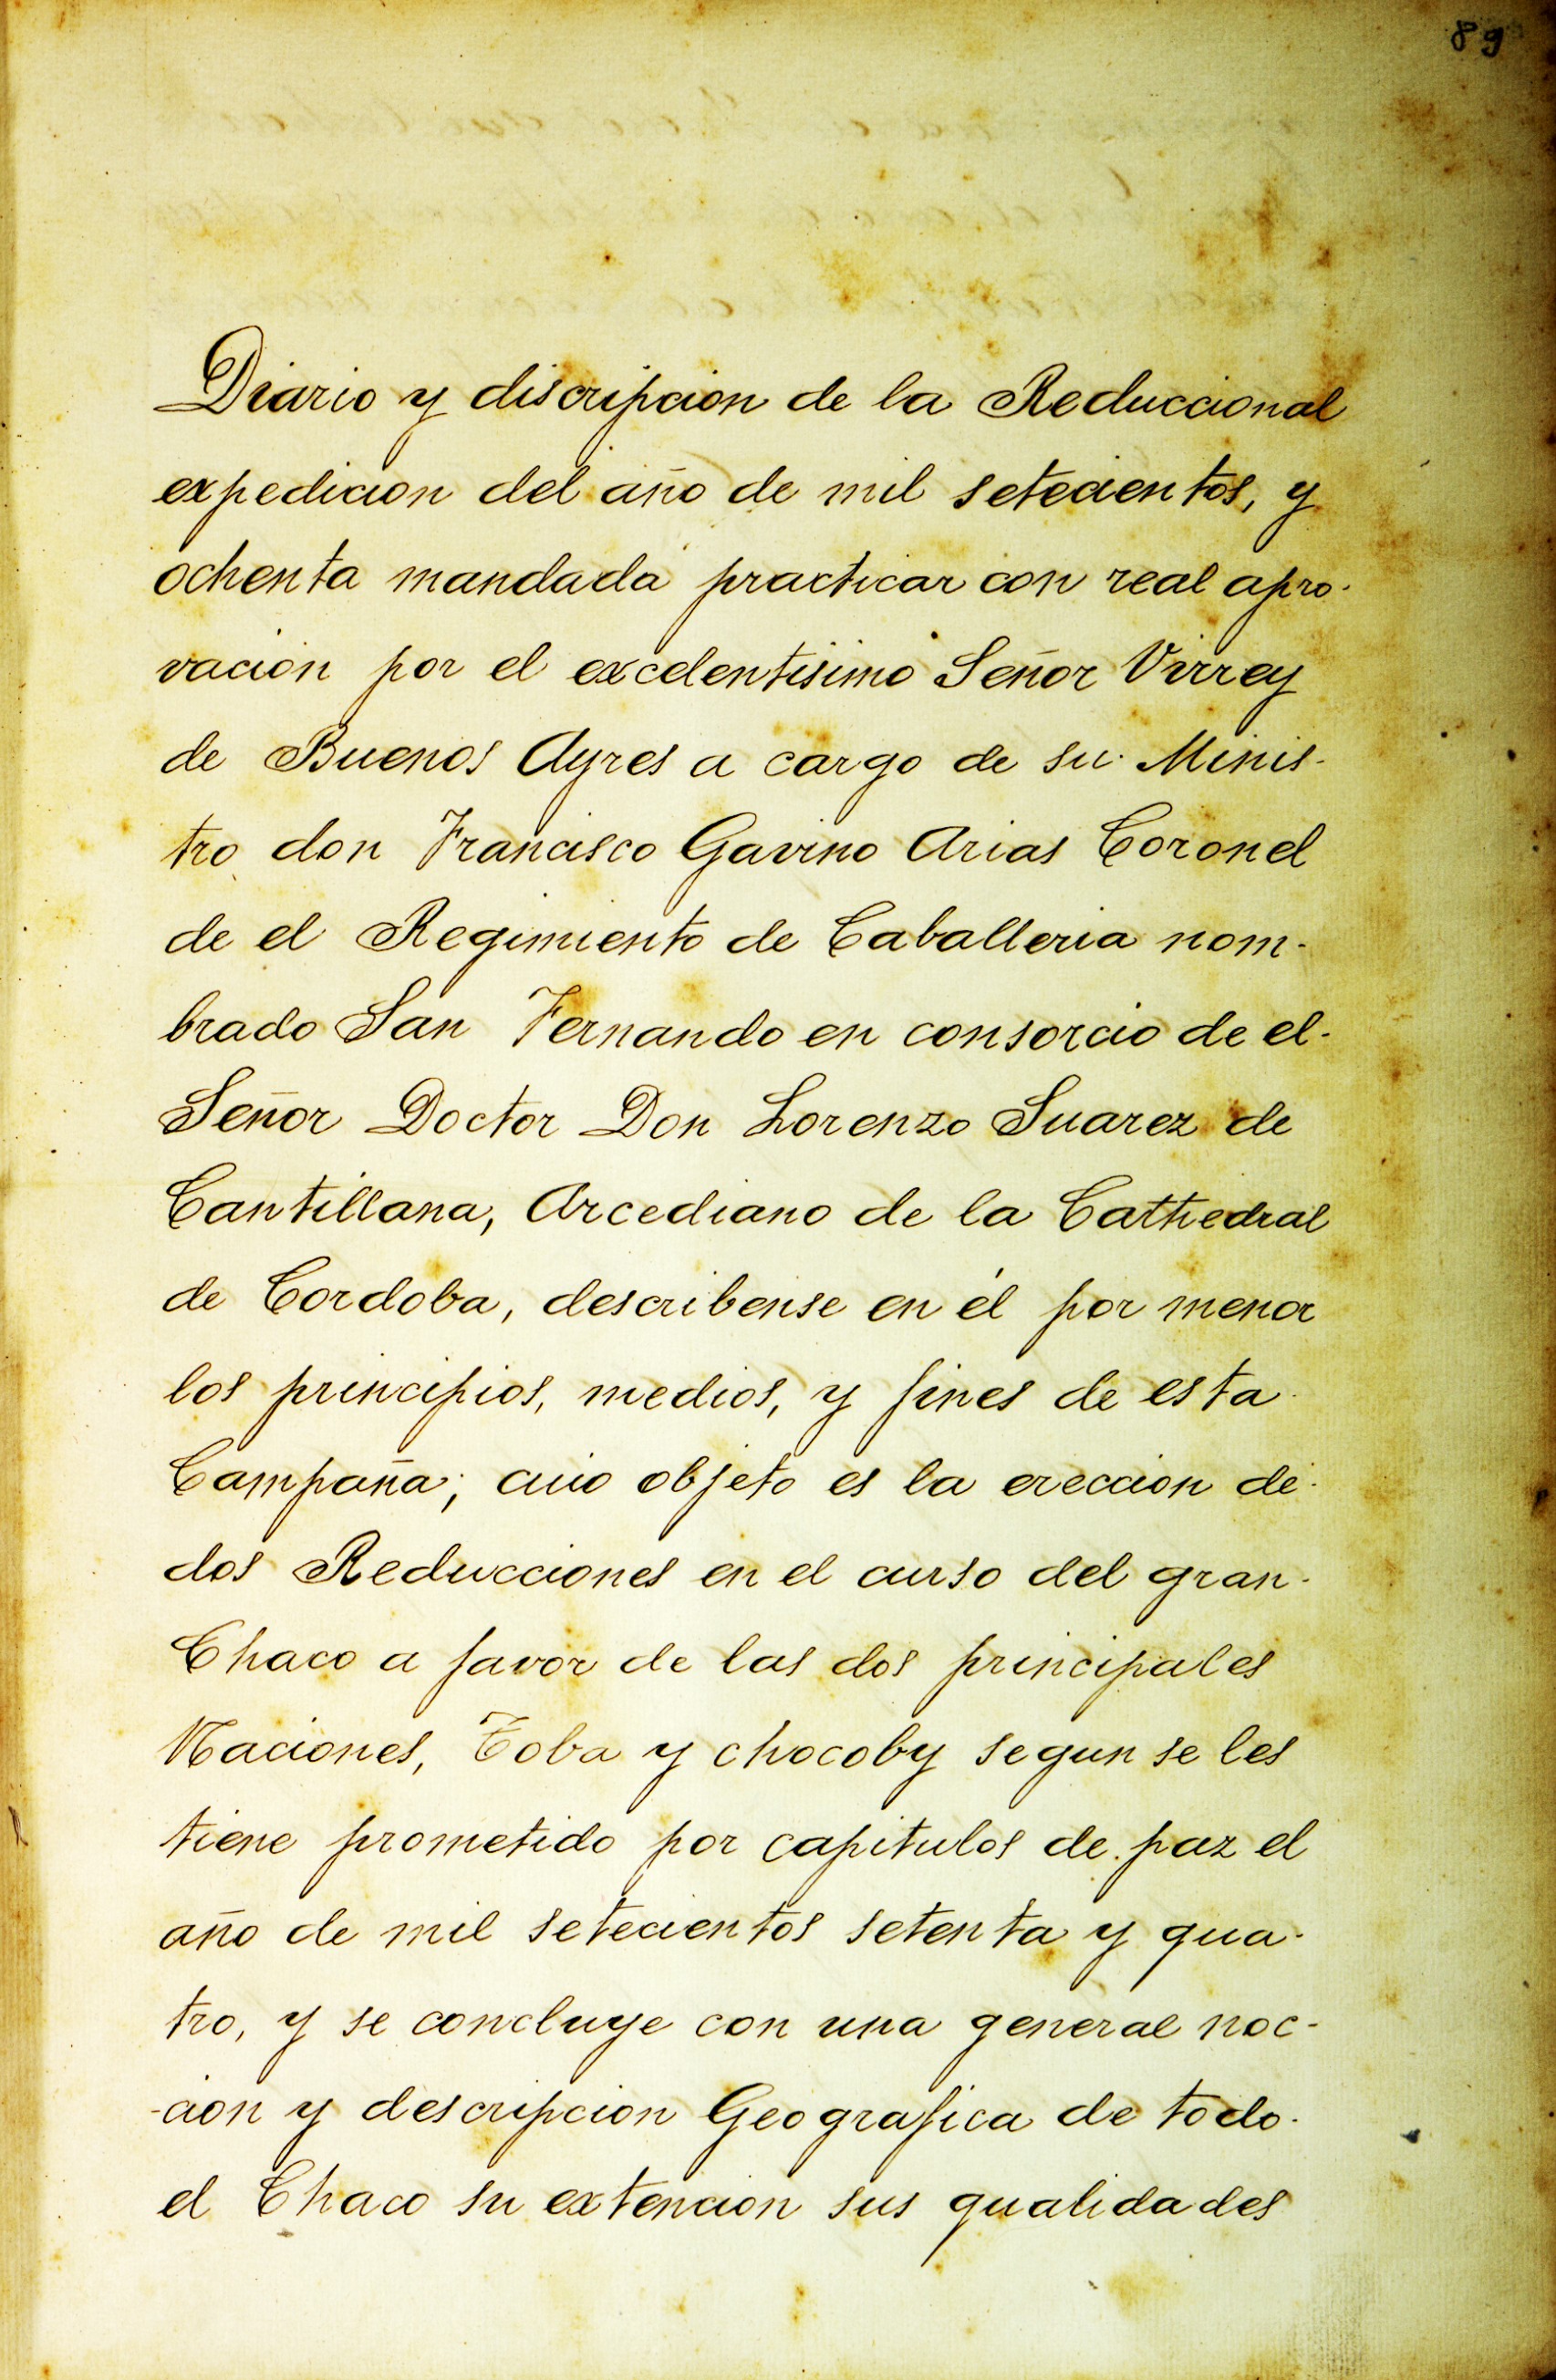 89
Diario y discripcion de la Reduccional
expedicion del año de mil setecientos, y
ochenta mandada practicar con real apro-
vacion por el excelentisimo Señor Virrey
de Buenos Ayres a cargo de su Minis-
tro don Francisco Gavino Arias Coronel
de el Regimiento de Caballeria nom-
brado San Fernando en consorcio de el
Señor Doctor Don Lorenzo Suarez de
Cantillana, Arcediano de la Cathedral
de Cordoba, describense en él por menor
los principios, medios, y fines de esta
Campaña; cuio objeto es la ereccion de
dos Reducciones en el curso del gran
Chaco a favor de las dos principales
Naciones, Toba y chocoby segun se les
tiene prometido por capitulos de paz el
año de mil setecientos setenta y qua-
tro, y se concluye con una general noc-
-cion y descripcion Geografica de todo
el Chaco su extencion sus qualidades